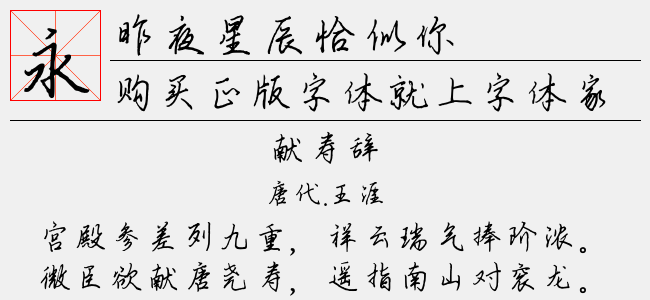 永
昨夜星辰恰似你
购买正版字体就上字体家
献寿辞
唐代.王涯
宫殿参差列九重，祥云瑞气捧阶浓。
微臣欲献唐尧寿，遥指南山对衮龙。